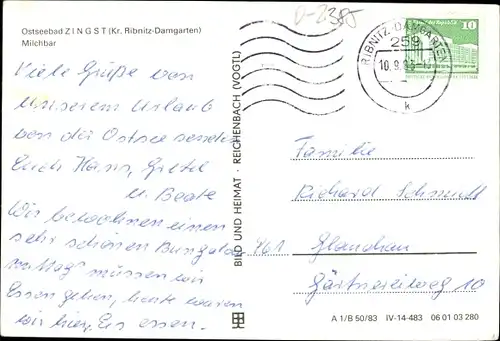 Ostseebad ZINGST (Kr. Ribnitz-Damgarten)
Milchbar
Viele Grüße von
unserem Urlaub
von der Ostsee senden
Euch Hans, Gretel
u. Beate
Wir bewohnen einen
sehr schönen Bungalow
müssen wir
Essen gehen, heute waren
wir hier Eis essen.
BILD UND HEIMAT · REICHENBACH (VOGTL)
RIBNITZ-DAMGARTEN
259
k
10
Familie
Richard Schmidt
961 Glauchau
Gärtnereiweg 10
A 1/B 50/83 IV-14-483 06 01 03 280